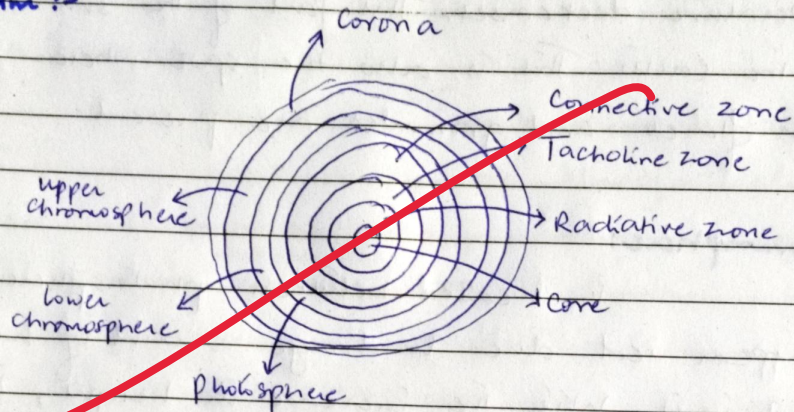 Corona
Connective zone
Tacholine zone
upper
chromosphere
Radiative zone
lower
chromosphere
Core
photosphere